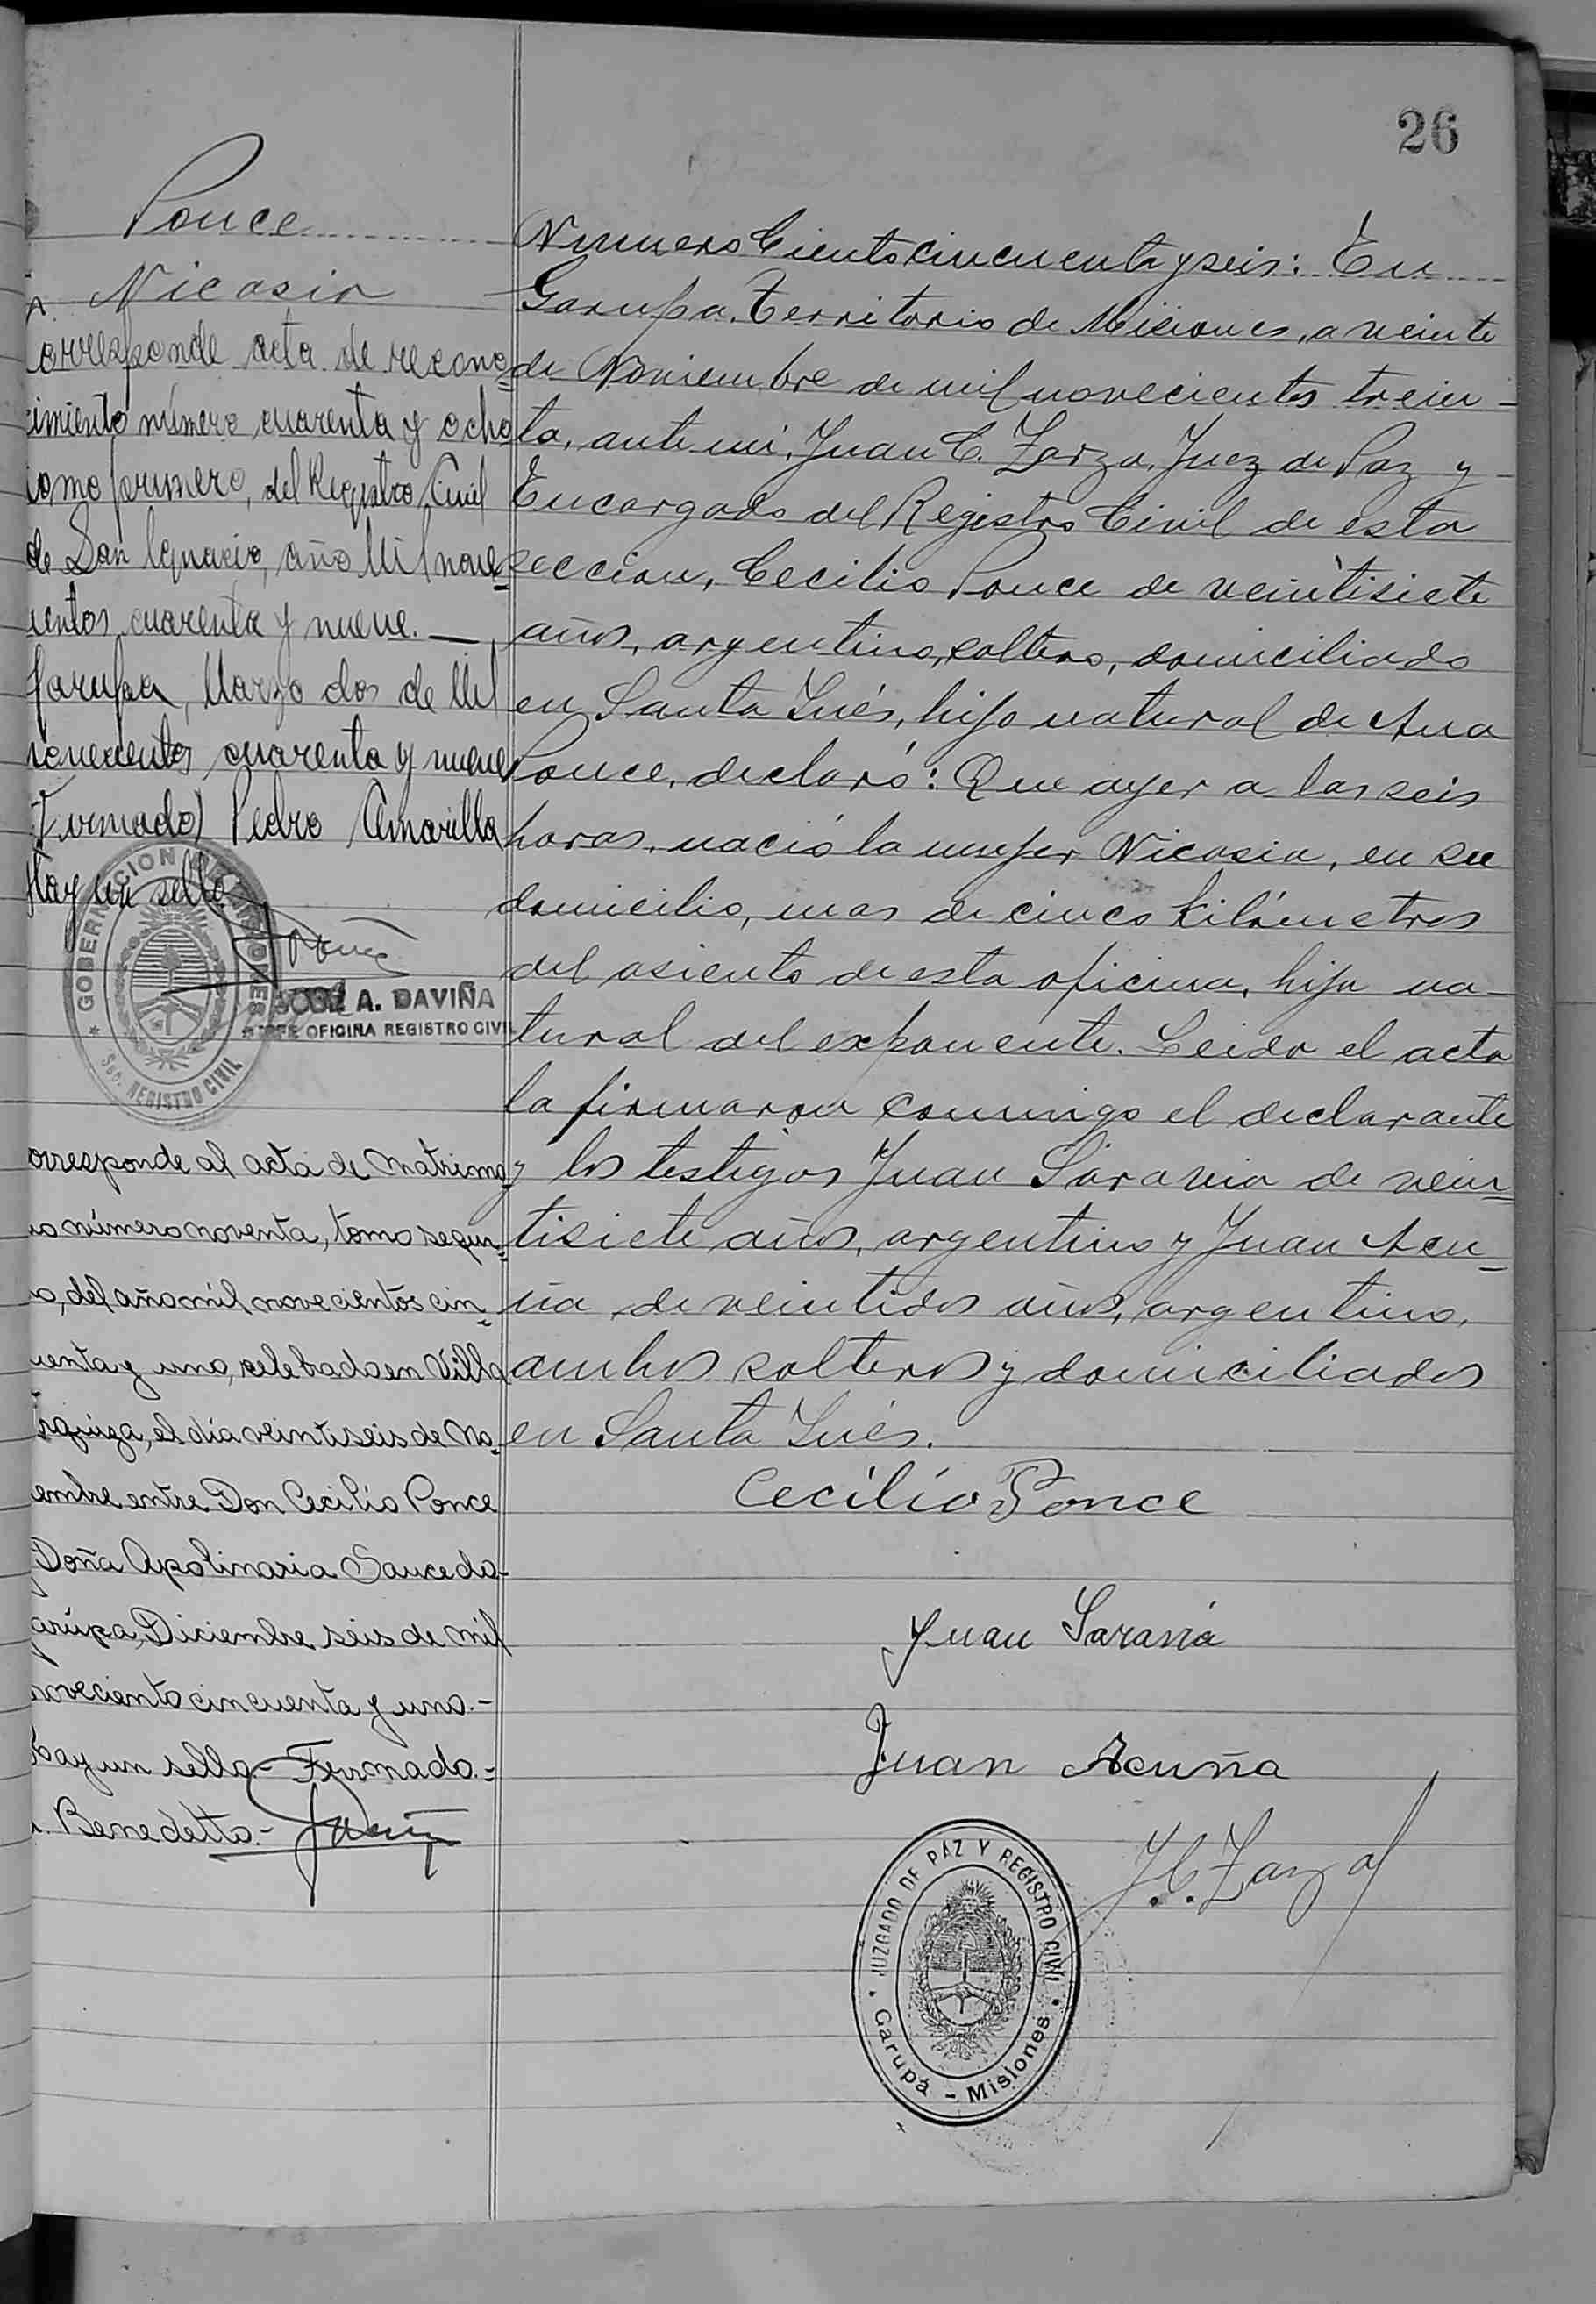 26
Ponce
Nicasia
orresponde acta de recono=
cimiento número cuarenta y ocho
tomo primero, del Registro Civil
de San Ignacio, año Mil nove=
cientos cuarenta y nueve. —
Garupa, Marzo dos de Mil
novecientos cuarenta y nueve
Firmado) Pedro Amarilla
Hay un sello
GOBERNACION DE MISIONES
Sec. REGISTRO CIVIL
JOSE A. DAVIÑA
JEFE OFICINA REGISTRO CIVIL
orresponde al acta de matrimo
io número noventa, tomo segun=
o, del año mil novecientos cin=
uenta y uno, celebado en Villa
Urquiza, el día veintiseis de No=
embre entre Don Cecilio Ponce
y Doña Apolinaria Saucedo-
arupa, Diciembre seis de mil
noveciento cincuenta y uno.-
Hay un sello- Firmado.=
Benedetto.-
Numero Ciento cincuenta y seis: En
Garupa, Territorio de Misiones, a veinte
de Noviembre de mil novecientos trein-
ta, ante mi, Juan C. Zarza, Juez de Paz y
Encargado del Registro Civil de esta
seccion, Cecilio Ponce de veintisiete
años, argentino, soltero, domiciliado
en Santa Inés, hijo natural de Ana
Ponce, declaró: Que ayer a las seis
horas, nació la mujer Nicasia, en su
domicilio, mas de cinco kilómetros
del asiento de esta oficina, hija na-
tural del exponente. Leida el acta
la firmaron conmigo el declarante
y los testigos Juan Saravia de vein=
tisiete años, argentino y Juan Acu=
ña de veintidos años, argentino,
ambos solteros y domiciliados
en Santa Inés.
Cecilio Ponce
Juan Saravia
Juan Acuña
J.C. Zarza
JUZGADO DE PAZ Y REGISTRO CIVIL
Garupá - Misiones